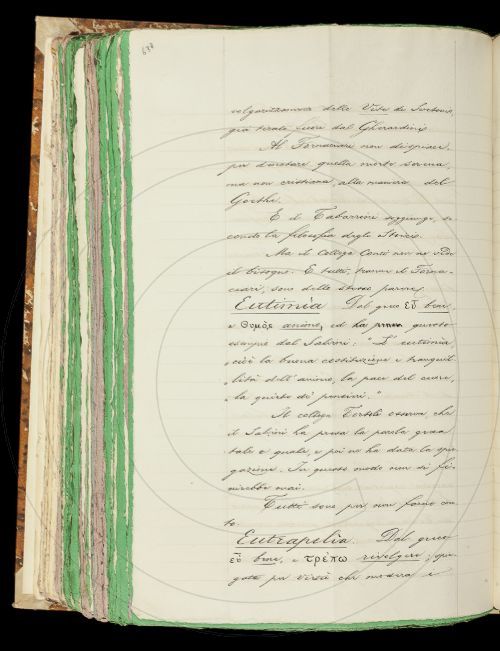 638
volgarizzamento delle Vite di Svetonio,
già tirato fuori dal Gherardini.
Al Fornaciari non dispiace,
per dinotare quella morte serena,
ma non cristiana, alla maniera del
Goethe.
E il Tabarrini soggiunge, se-
condo la filosofia degli Stoici.
Ma il Collega Conti non ne vede
il bisogno. E tutti, tranne il Forna-
ciari, sono dello stesso parere.
Eutimia Dal greco εὖ bene,
e θυμός animo, ed ha questo
esempio dal Salvini: "L'eutimia,
cioè la buona costituzione e tranquil-
lità dell'animo, la pace del cuore,
la quiete de' pensieri."
Il collega Tortoli osserva, che
il Salvini ha presa la parola greca
tale e quale, e poi ne ha data la spie-
gazione. In questo modo non si fi-
nirebbe mai.
Tutti sono per non farne con-
to.
Eutrapelia. Dal greco
εὖ bene, e τρέπω rivolgere; spie-
gata per virtù che modera i